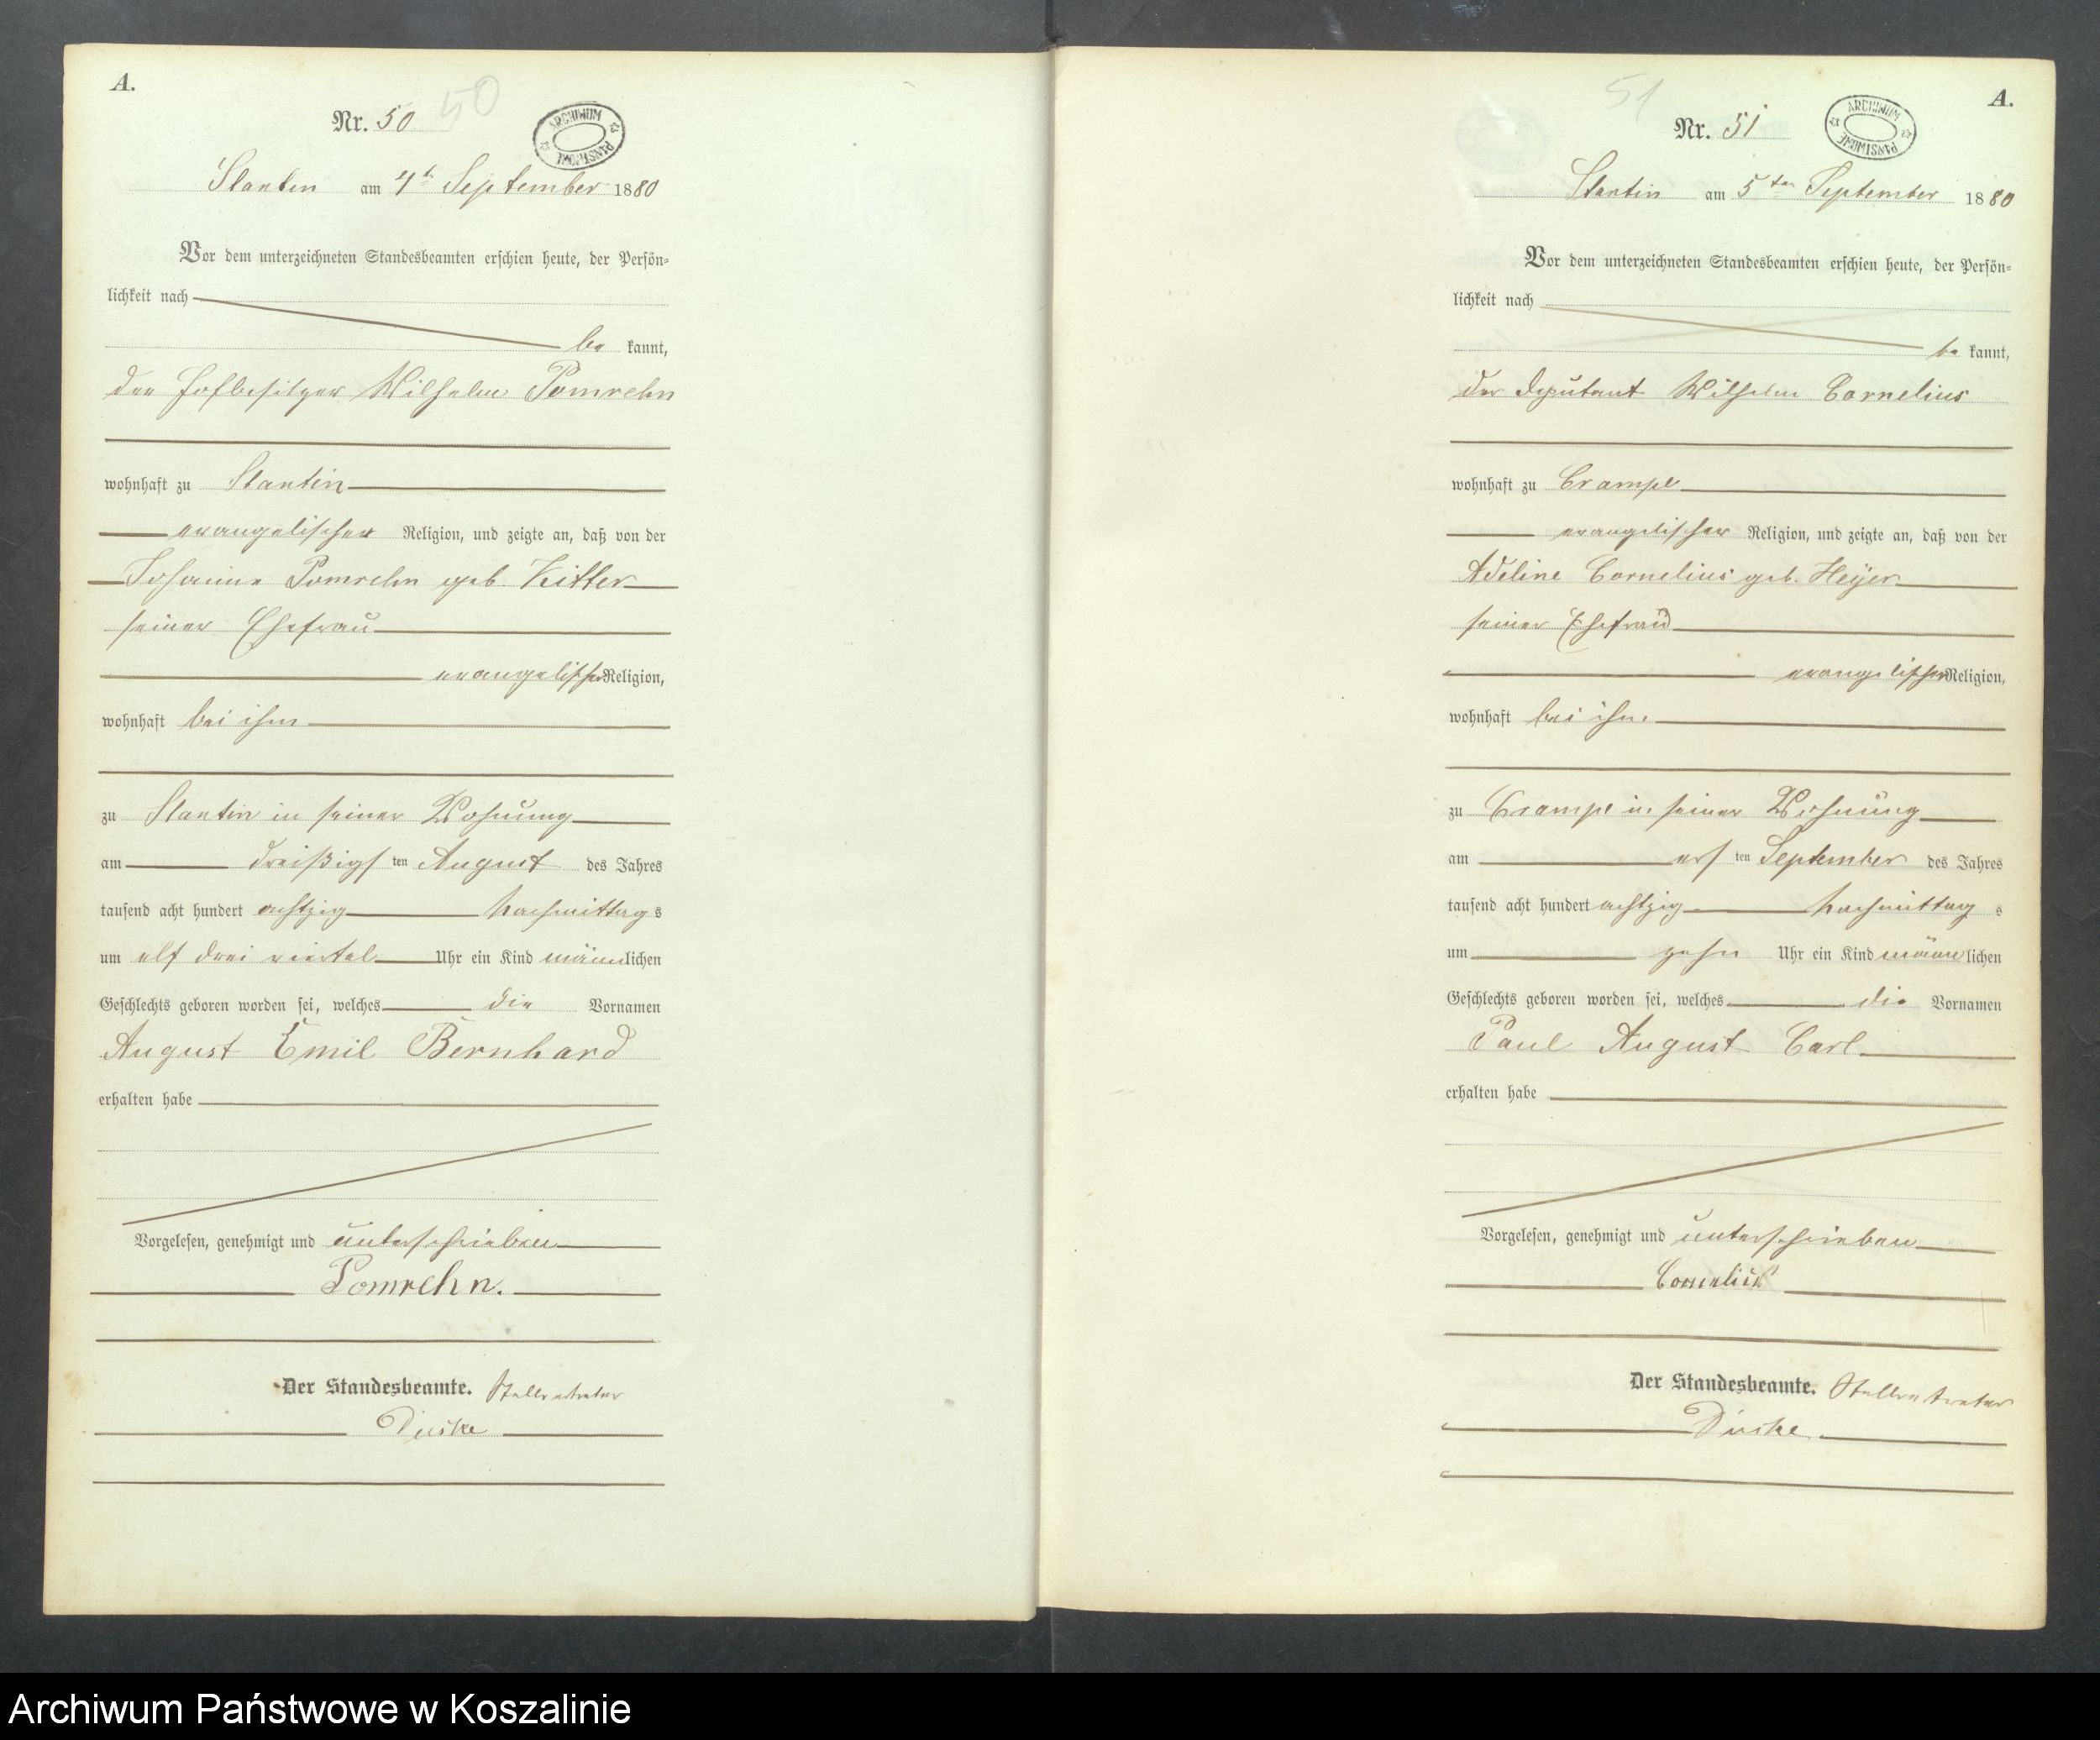 A.
Nr. 50 50
ARCHIWUM PAŃSTWOWE
Stantin am 4t September 1880
Vor dem unterzeichneten Standesbeamten erschien heute, der Persön=
lichkeit nach
be kannt,
der Hofbesitzer Wilhelm Pomrehn
wohnhaft zu Stantin
evangelischer Religion, und zeigte an, daß von der
Johanne Pomrehn geb.
seiner Ehefrau
evangelischer Religion,
wohnhaft bei ihm
zu Stantin in seiner Wohnung
am dreißigsten August des Jahres
tausend acht hundert achtzig Nachmittags
um elf drei viertel Uhr ein Kind männlichen
Geschlechts geboren worden sei, welches die Vornamen
August Emil Bernhard
erhalten habe
Vorgelesen, genehmigt und unterschrieben
Pomrehn.
Der Standesbeamte. Stellvertreter
A.
51
Nr. 51
ARCHIWUM PAŃSTWOWE
Stantin am 5ten September 1880
Vor dem unterzeichneten Standesbeamten erschien heute, der Persön=
lichkeit nach
be kannt,
der Deputant Wilhelm Cornelius
wohnhaft zu Crampe
evangelischer Religion, und zeigte an, daß von der
Adeline Cornelius geb. Heyer
seiner Ehefrau
evangelischer Religion,
wohnhaft bei ihm
zu Crampe in seiner Wohnung
am ersten September des Jahres
tausend acht hundert achtzig Nachmittags
um zehn Uhr ein Kind männlichen
Geschlechts geboren worden sei, welches die Vornamen
Paul August Carl
erhalten habe
Vorgelesen, genehmigt und unterschrieben
Cornelius
Der Standesbeamte. Stellvertreter
Archiwum Państwowe w Koszalinie